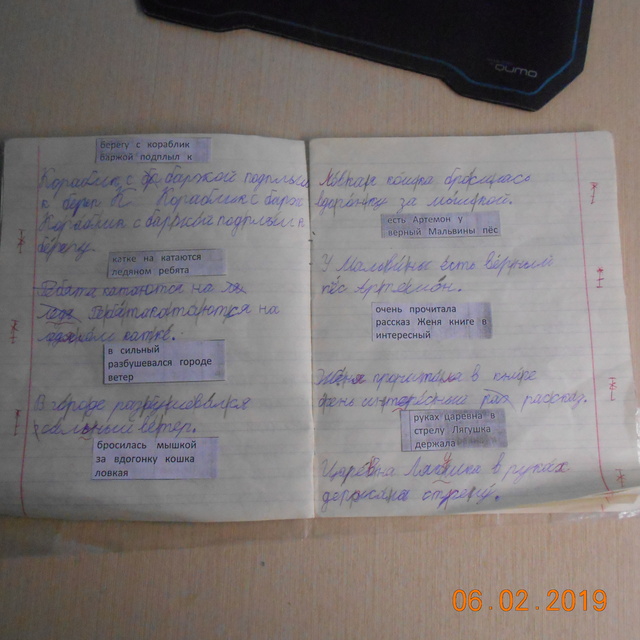 берегу с кораблик
варжой подплыл к
Кораблик с баржой подплыл
к
Кораблик с
Кораблик с подплыл к
берегу
катке на катаются
ледяном ребята
катаются на
катаются на
катке.
в сильный
разбушевался городе
ветер
В городе
ветер.
бросилась мышкой
за вдогонку кошка
ловкая
кошка бросилась
вдогонку за мышкой.
есть Артемон у
верный Мальвины пёс
У Мальвины есть верный
пёс Артемон.
очень прочитала
рассказ Женя книге в
интересный
Женя прочитала в книге
рассказ.
руках царевна в
стрелу Лягушка
держала
Царевна Лягушка в руках
держала стрелу.
ouma
06.02.2019